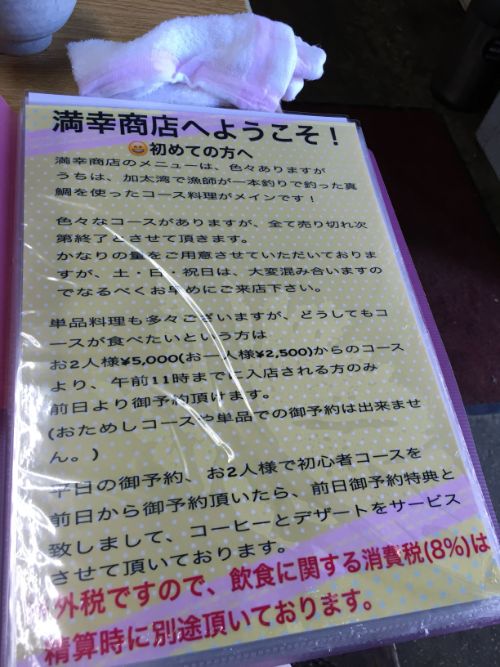 満幸商店へようこそ！
初めての方へ
満幸商店のメニューは、色々ありますが
うちは、加太湾で漁師が一本釣りで釣った真
鯛を使ったコース料理がメインです！
色々なコースがありますが、全て売り切れ次
第終了とさせて頂きます。
かなりの量をご用意させていただいておりま
すが、土・日・祝日は、大変混み合いますの
でなるべくお早めにご来店下さい。
単品料理も多々ございますが、どうしてもコ
ースが食べたいという方は
お2人様¥5,000(お一人様¥2,500)からのコース
より、午前11時までに入店される方のみ
前日より御予約頂けます。
(おためしコースや単品での御予約は出来ませ
ん。)
平日の御予約、お2人様で初心者コースを
前日から御予約頂いたら、前日御予約特典と
致しまして、コーヒーとデザートをサービス
させて頂いております。
外税ですので、飲食に関する消費税(8%)は
精算時に別途頂いております。